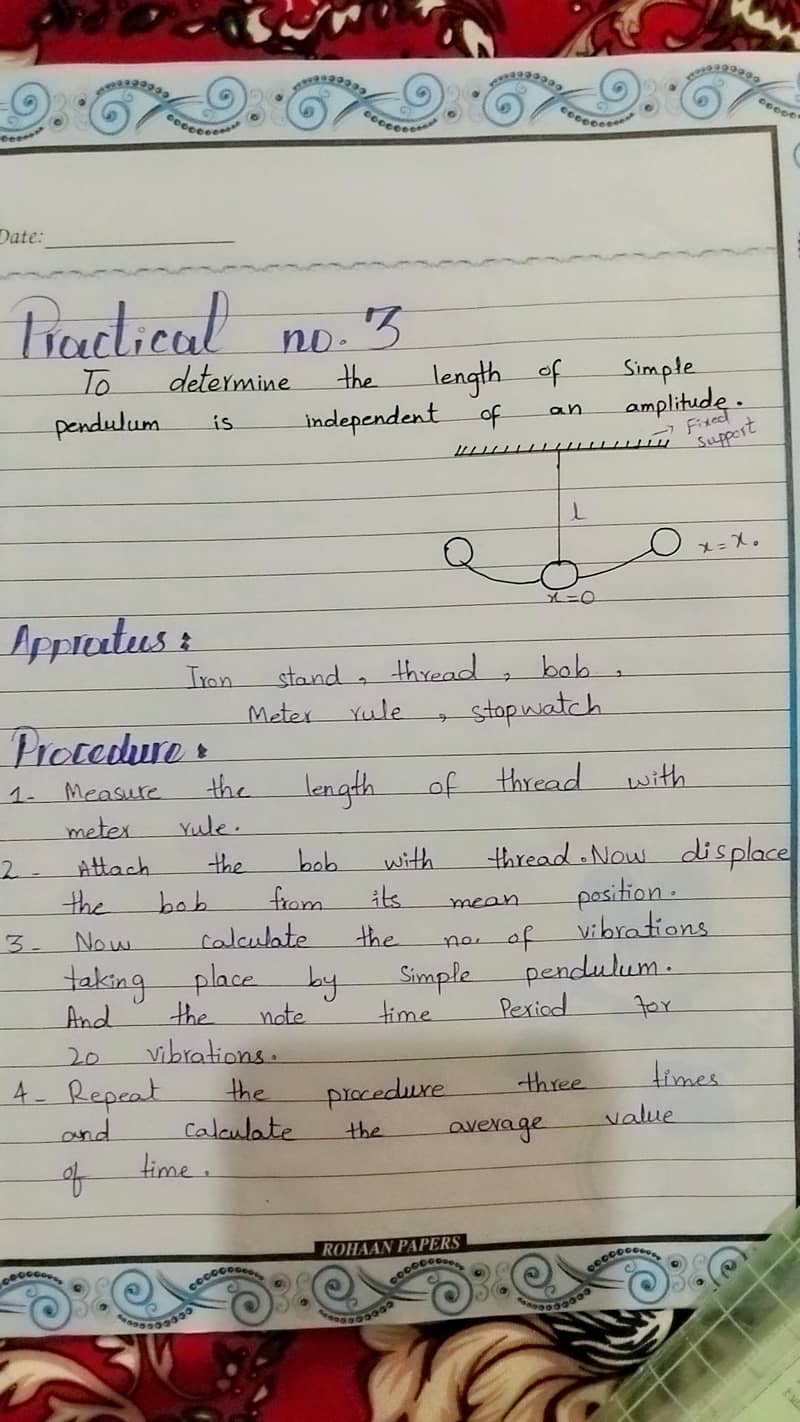 Date:
Practical no. 3
To determine the length of Simple
pendulum is independent of an amplitude.
→ Fixed
support
l
x = x₀
x=0
Appratus:
Iron stand, thread, bob,
Meter rule, stopwatch
Procedure:
1- Measure the length of thread with
meter rule.
2- Attach the bob with thread. Now displace
the bob from its mean position.
3- Now calculate the no. of vibrations
taking place by Simple pendulum.
And the note time Period for
20 vibrations.
4- Repeat the procedure three times
and calculate the average value
of time.
ROHAAN PAPERS